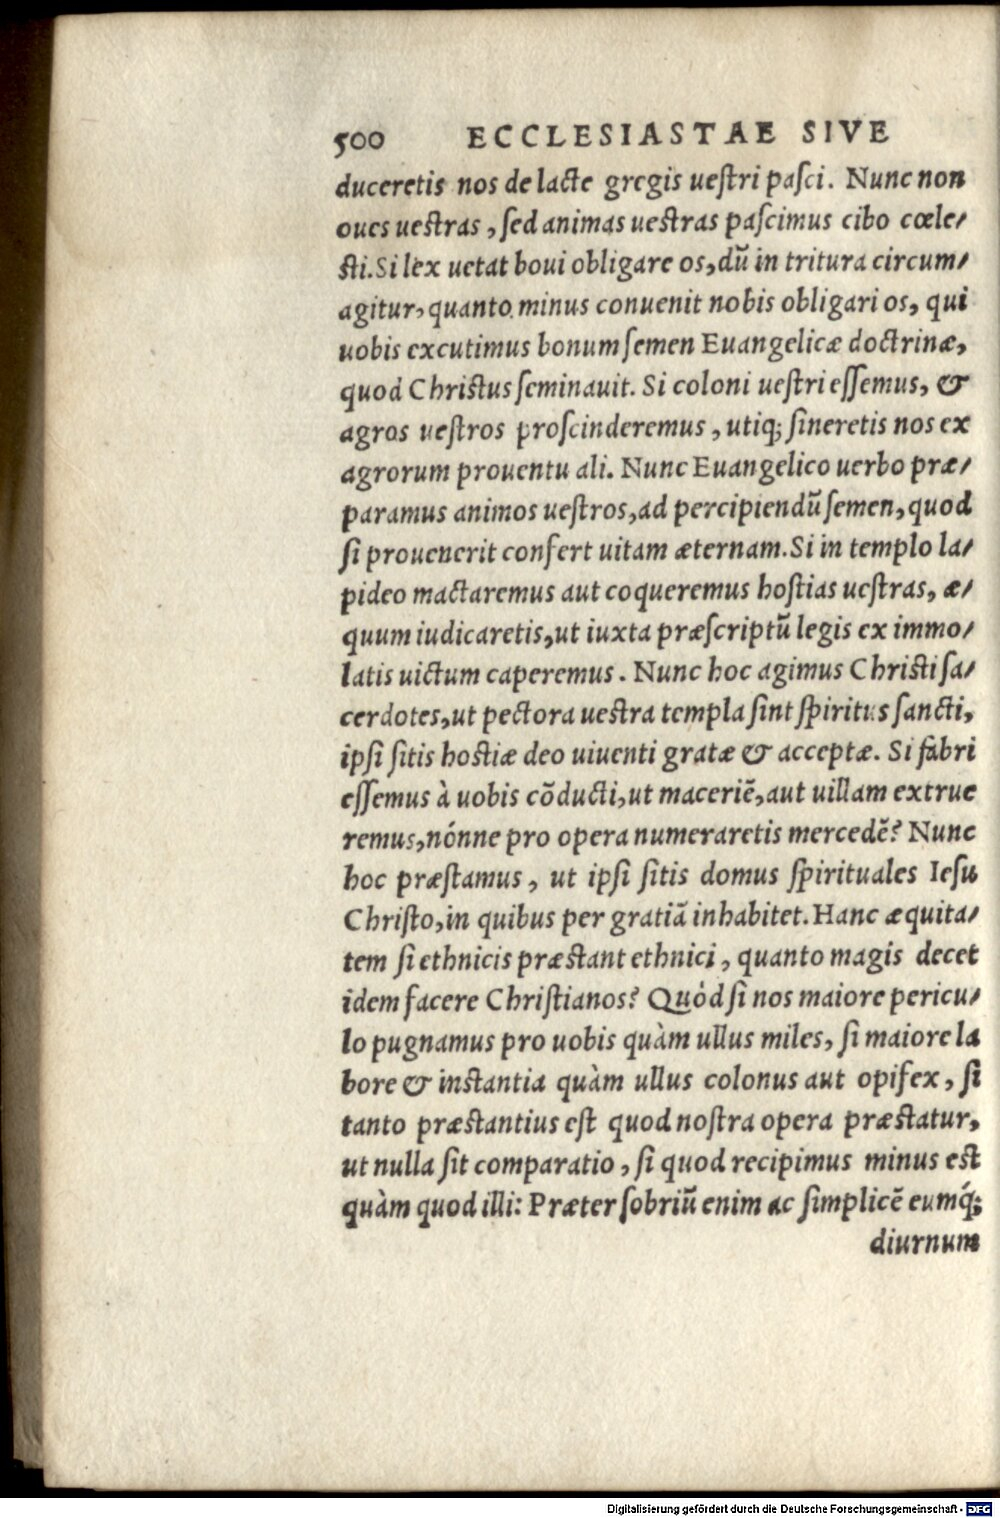 500 ECCLESIASTAE SIVE
duceretis nos de lacte gregis ueſtri paſci. Nunc non
oues ueſtras, ſed animas ueſtras paſcimus cibo cœle/
ſti. Si lex uetat boui obligare os, dū in tritura circum/
agitur, quanto minus conuenit nobis obligari os, qui
uobis excutimus bonum ſemen Euangelicæ doctrinæ,
quod Chriſtus ſeminauit. Si coloni ueſtri eſſemus, &
agros ueſtros proſcinderemus, utiq; ſineretis nos ex
agrorum prouentu ali. Nunc Euangelico uerbo præ/
paramus animos ueſtros, ad percipiendū ſemen, quod
ſi prouenerit confert uitam æternam. Si in templo la/
pideo mactaremus aut coqueremus hoſtias ueſtras, æ/
quum iudicaretis, ut iuxta præſcriptū legis ex immo/
latis uictum caperemus. Nunc hoc agimus Chriſti ſa/
cerdotes, ut pectora ueſtra templa ſint ſpiritus ſancti,
ipſi ſitis hoſtiæ deo uiuenti gratæ & acceptæ. Si fabri
eſſemus à uobis cōducti, ut maceriē, aut uillam extrue
remus, nónne pro opera numeraretis mercedē? Nunc
hoc præſtamus, ut ipſi ſitis domus ſpirituales Ieſu
Chriſto, in quibus per gratiā inhabitet. Hanc æquita/
tem ſi ethnicis præſtant ethnici, quanto magis decet
idem facere Chriſtianos? Quòd ſi nos maiore pericu/
lo pugnamus pro uobis quàm ullus miles, ſi maiore la
bore & inſtantia quàm ullus colonus aut opifex, ſi
tanto præſtantius eſt quod noſtra opera præſtatur,
ut nulla ſit comparatio, ſi quod recipimus minus eſt
quàm quod illi: Præter ſobriū enim ac ſimplicē eumq́;
diurnum
Digitalisierung gefördert durch die Deutsche Forschungsgemeinschaft - DFG